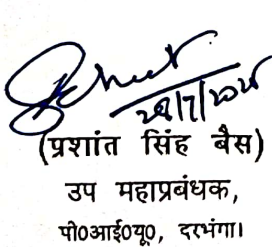 28/7/2025
(प्रशांत सिंह बैस)
उप महाप्रबंधक,
पी०आई०यू०, दरभंगा।